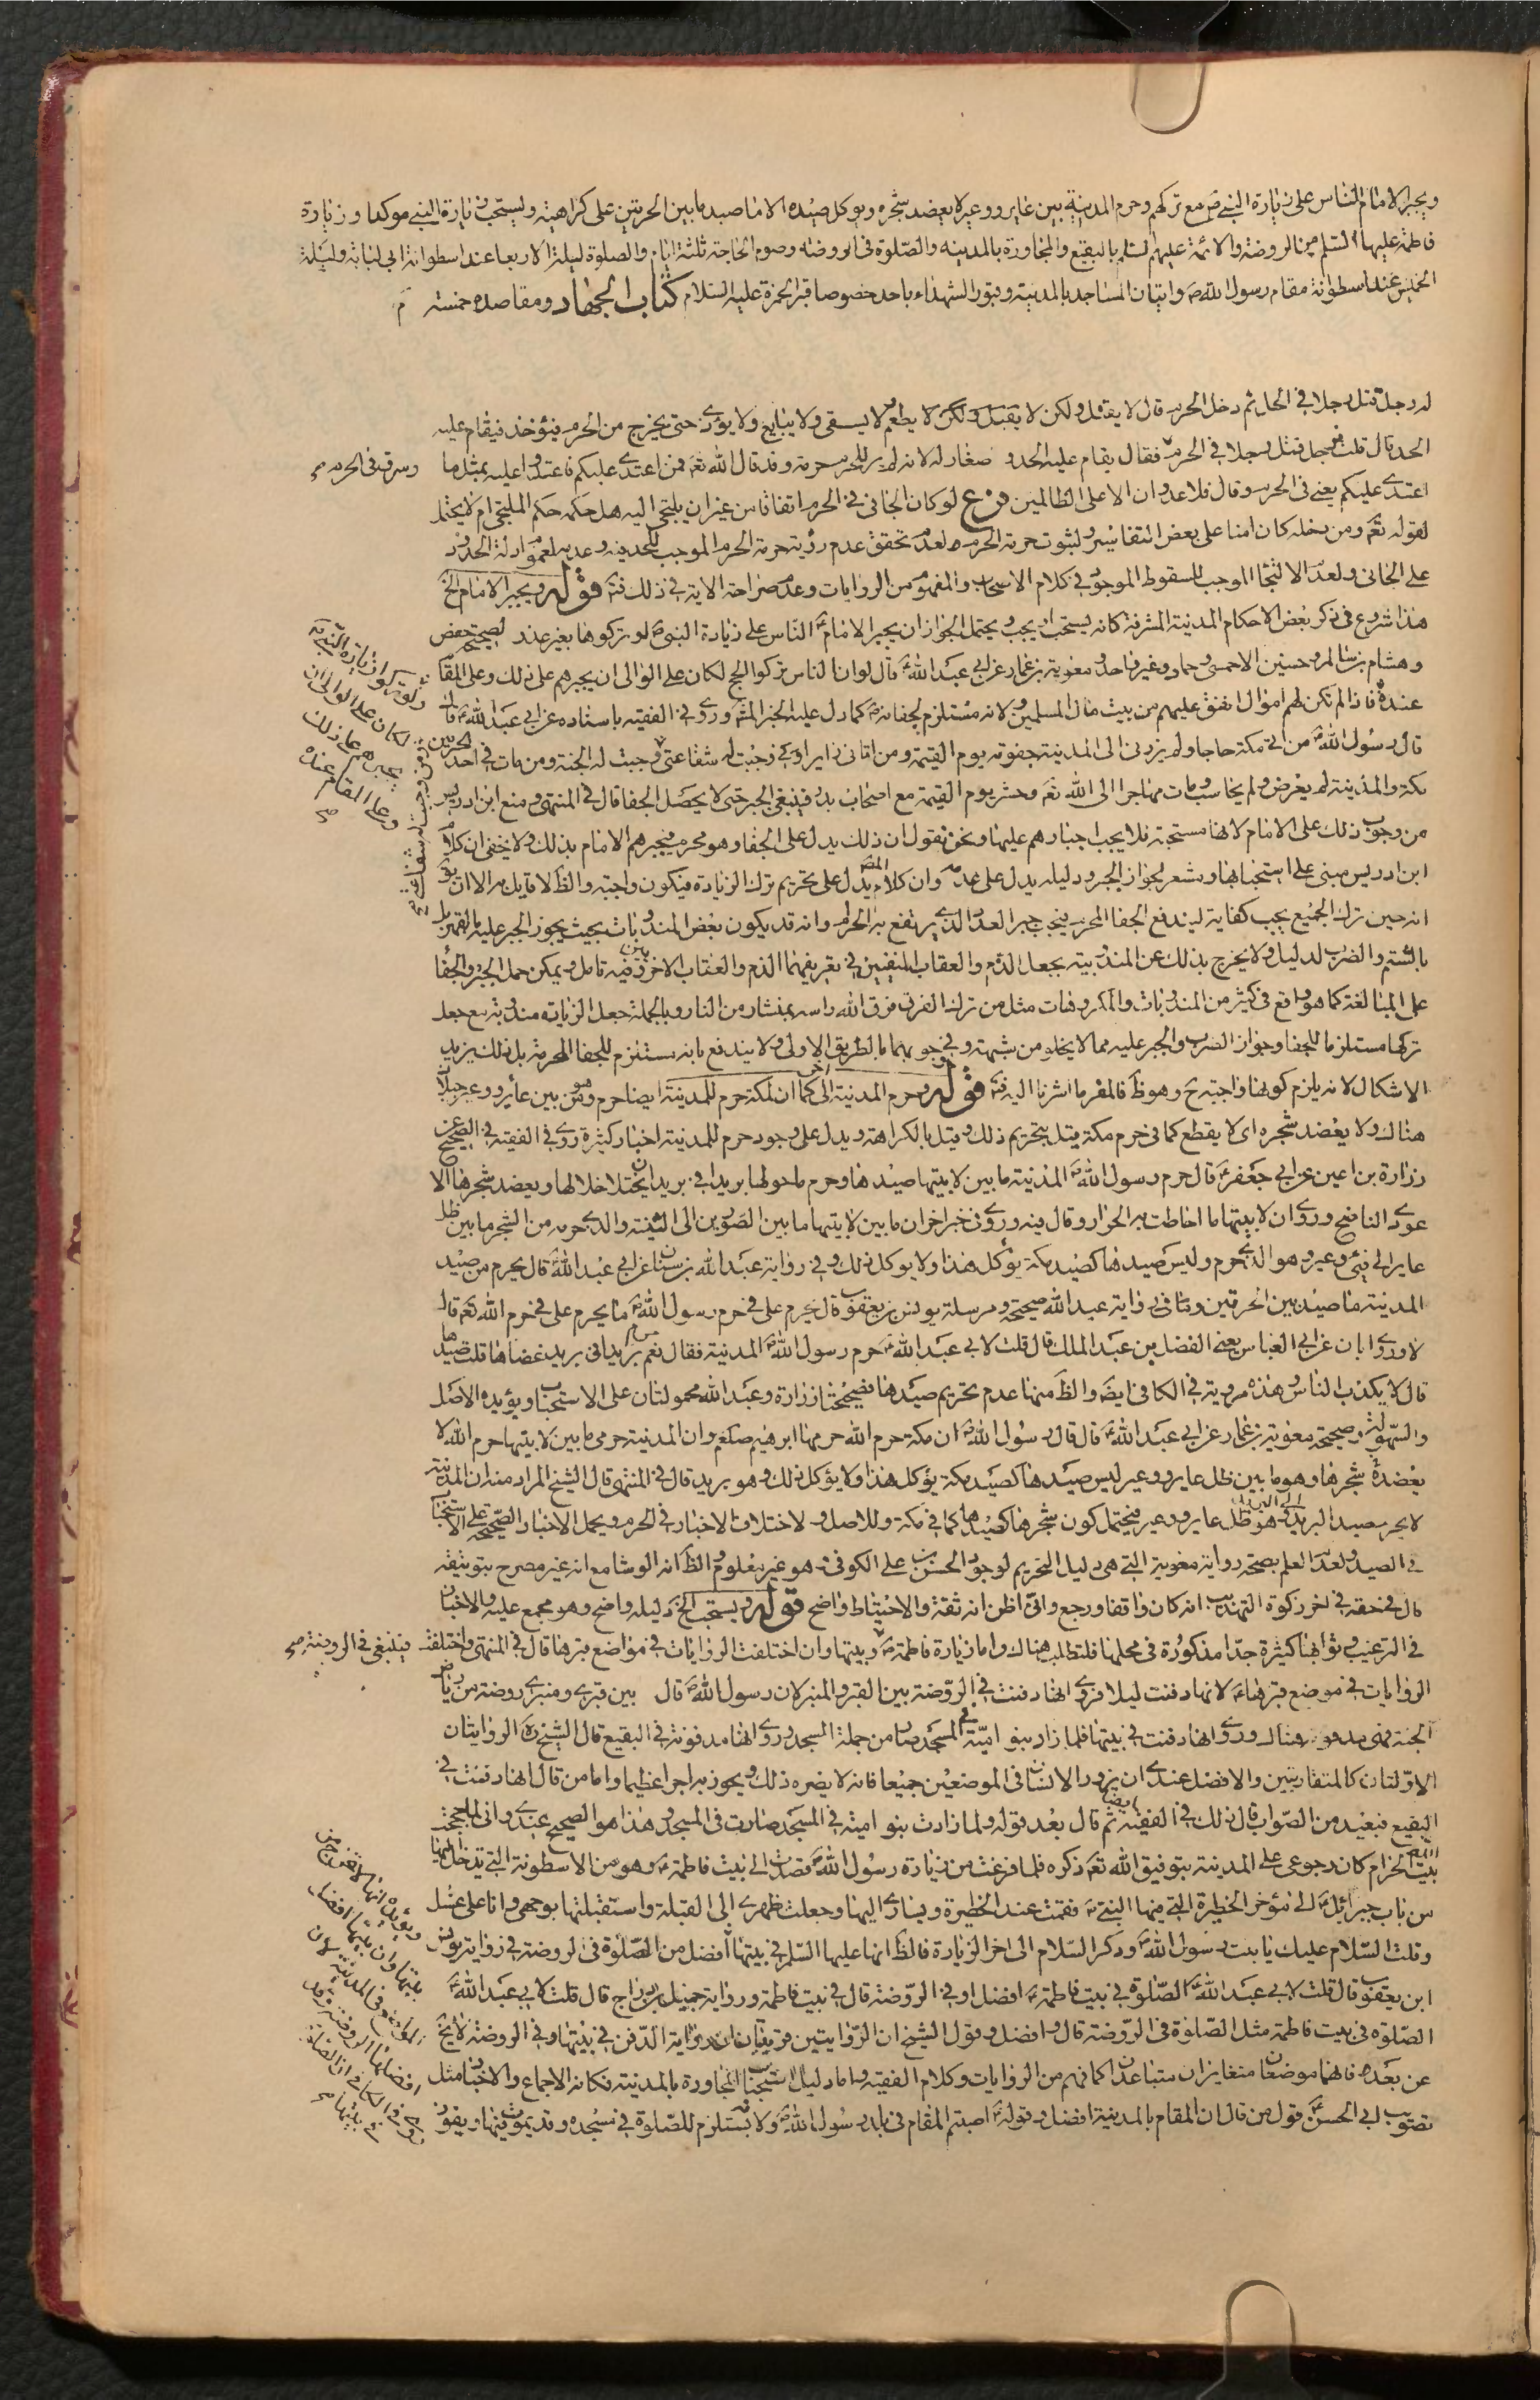 ويجبر الامام الناس على زيارة النبي ص مع تركهم وحرم المدينة بين عاير ووعير لا يعضد شجره ويوكل صيده الا ما صيد ما بين الحرتين على كراهية ويستحب زيارة النبي موكدا وزيارة
فاطمة عليها السلم من الروضة والائمة عليهم السلم بالبقيع والمجاورة بالمدينة والصلوة في الروضة وصوم الحاجة ثلثة ايام والصلوة ليلة الاربعا عند اسطوانة ابي لبابة وليلة
الخميس عند اسطوانة مقام رسول الله ص واتيان المساجد بالمدينة وقبور الشهداء باحد خصوصا قبر الحمزة عليه السلام كتاب الجهاد ومقاصده خمسة
له رجل قتل رجلا في الحل ثم دخل الحرم قال لا يقتل ولكن لا يطعم ولا يسقى ولا يبايع ولا يؤذى حتى يخرج من الحرم فيؤخذ فيقام عليه
الحد قال قلت فرجل قتل رجلا في الحرم فقال يقام عليه الحد وصغار له لانه لم ير للحرم حرمة وقد قال الله تع فمن اعتدى عليكم فاعتدوا عليه بمثل ما
وسرق في الحرم صح
اعتدى عليكم يعني في الحرم وقال فلا عدوان الا على الظالمين فرع لو كان الجاني في الحرم اتفاقا من غير ان يلتجي اليه هل حكمه حكم الملتجي ام لا يحتمل
لقوله تع ومن دخله كان امنا على بعض التفاسير ولثبوت حرمة الحرم ولعدم تحقق عدم رؤية حرمة الحرم الموجب للحد فيه وعدمه لعموم ادلة الحدود
على الجاني ولعدم الالتجا الموجب للسقوط الموجود في كلام الاصحاب والمفهوم من الروايات وعدم صراحة الاية في ذلك فت قوله ويجبر الامام الخ
هذا شروع في ذكر بعض الاحكام المدينة المشرفة كانه يستحب او يجب ويحتمل الجواز ان يجبر الامام الناس على زيارة النبي ص لو تركوها بغير عذر لصحيحة حفص
وهشام بن سالم وحسين الاحمسي وحماد وغير واحد ومعوية بن عمار عن ابي عبد الله ع قال لو ان الناس تركوا الحج لكان على الوالي ان يجبرهم على ذلك وعلى المقام
ولو تركوا زيارة النبي ص
لكان على الوالي ان
يجبرهم على ذلك
وعلى المقام عنده
صح
عنده فاذا لم تكن لهم اموال انفق عليهم من بيت مال المسلمين ولانه مستلزم لجفائه ص كما دل عليه الخبر المشهور وروى في الفقيه باسناده عن ابي عبد الله ع قال
قال رسول الله ص من اتى مكة حاجا ولم يزرني الى المدينة جفوته يوم القيمة ومن اتاني زايرا وجبت له شفاعتي ومن وجبت له شفاعتي وجبت له الجنة ومن مات في احد الحرمين
مكة والمدينة لم يعرض ولم يحاسب ومات مهاجرا الى الله تع وحشر يوم القيمة مع اصحاب بدر فينبغي الجبر حتى لا يحصل الجفا قال في المنتهى ومنع ابن ادريس
من وجوب ذلك على الامام لانها مستحبة فلا يجب اجبارهم عليها ونحن نقول ان ذلك يدل على الجفا وهو محرم فيجبرهم الامام بذلك ولا يخفى ان كلام
ابن ادريس مبني على استحبابها ويشعر لجواز الجبر ودليله يدل على عدمه وان كلام المص يدل على تحريم ترك الزيارة فيكون واجبة والظ لا قايل به الا ان يقال
انه حين ترك الجميع يجب كفاية ليندفع الجفا المحرم فيجب جبر العدد الذي يرتفع به الحرام وانه قد يكون بعض المندوبات بحيث يجوز الجبر عليه
بالشتم والضرب لدليل ولا يخرج بذلك عن المندوبية بجعل الذم والعقاب المنفيين في تعريفهما الذم والعقاب الاخروي وفيه تامل ويمكن حمل الجبر والجفا
على المبالغة كما هو واقع في كثير من المندوبات والمكروهات مثل من ترك الفرق فرق الله راسه بمنشار من النار وبالجملة جعل الزيارة مندوبة مع جعل
تركها مستلزما للجفا وجواز الضرب والجبر عليه مما لا يخلو من شبهة وفي وجوبها بالطريق الاولى ولا يندفع بانه مستلزم للجفا المحرم بل ذلك يزيد
الاشكال لانه يلزم كونها واجبة ح وهو ظ فالمفر ما اشرنا اليه فت قوله وحرم المدينة الخ كما ان لمكة حرم للمدينة ايضا حرم وهو من بين عاير ووعير جبلان
هناك ولا يعضد شجره اي لا يقطع كما في حرم مكة قيل بتحريم ذلك وقيل بالكراهة ويدل على وجود حرم للمدينة اخبار كثيرة روى في الفقيه في الصحيح عن
زرارة بن اعين عن ابي جعفر ع قال حرم رسول الله ص المدينة ما بين لابتيها صيدها وحرم ما حولها بريدا في بريد ان يختلا خلالها ويعضد شجرها الا
عودي الناضح وروى ان لابتيها ما احاطت به الحرار وقال فيه وروى في خبر اخر ان ما بين لابتيها ما بين الصورين الى الثنية والذي حرمه من الشجر ما بين ظل
عاير الى فيئ وعير وهو الذي حرم وليس صيدها كصيد مكة يؤكل هذا ولا يوكل ذلك وفي رواية عبد الله بن سنان عن ابي عبد الله ع قال يحرم من صيد
المدينة ما صيد بين الحرتين وثاني رواية عبد الله صحيحة ومرسلة يونس بن يعقوب قال يحرم علي في حرم رسول الله ص ما يحرم علي في حرم الله تع قال
لا وروى ابان عن ابي العباس يعني الفضل بن عبد الملك قال قلت لابي عبد الله ع حرم رسول الله ص المدينة فقال نعم بريدا في بريد عضاها قلت صيدها
قال لا يكذب الناس وهذه مروية في الكافي ايض والظ منها عدم تحريم صيدها فصحيحتا زرارة وعبد الله محمولتان على الاستحباب ويؤيده الاصل
والسهولة وصحيحة معوية بن عمار عن ابي عبد الله ع قال قال رسول الله ص ان مكة حرم الله حرمها ابرهيم صلعم وان المدينة حرمي ما بين لابتيها حرم الله لا
يعضد شجرها وهو ما بين ظل عاير ووعير ليس صيدها كصيد مكة يؤكل هذا ولا يؤكل ذلك وهو بريد قال في المنتهى قال الشيخ المراد منه ان المدينة
لا يحرم صيد البريد الى البريد وهو ظل عاير ووعير فيحتمل كون شجرها كصيدها كما في مكة وللاصل ولاختلاف الاخبار في الحرم ويحمل الاخبار الصحيحة على الاستحباب
في الصيد ولعدم العلم بصحة رواية معوية التي هي دليل التحريم لوجود الحسن بن علي الكوفي وهو غير معلوم والظ انه الوشا مع انه غير مصرح بتوثيقه
قال في حقه في اخر زكوة التهذيب انه كان واقفا ورجع واني اظن انه ثقة والاحتياط واضح قوله ويستحب الخ دليله واضح وهو مجمع عليه والاخبار
في الترغيب وثوابها كثيرة جدا مذكورة في محلها فلتطلب هناك واما زيارة فاطمة ع وبيتها وان اختلفت الروايات في مواضع قبرها قال في المنتهى واختلفت
فينبغي في الروضة صح
الروايات في موضع قبرها ع لانها دفنت ليلا فروي انها دفنت في الروضة بين القبر والمنبر لان رسول الله ص قال بين قبري ومنبري روضة من رياض
الجنة فهي مدفونة هناك وروى انها دفنت في بيتها فلما زاد بنو امية في المسجد صار من جملة المسجد وروى انها مدفونة في البقيع قال الشيخ ره الروايتان
الاولتان كالمتقاربتين والافضل عندي ان يزور الانسان في الموضعين جميعا فانه لا يضره ذلك ويحوز به اجرا عظيما واما من قال انها دفنت في
البقيع فبعيد من الصواب قال ذلك في الفقيه ايضا ثم قال بعد قوله ولما زادت بنو امية في المسجد صارت في المسجد وهذا هو الصحيح عندي واني لما حججت
بيت الله الحرام كان رجوعي على المدينة بتوفيق الله تع ذكره فلما فرغت من زيارة رسول الله ص قصدت الى بيت فاطمة ع وهو من الاسطوانة التي تدخل اليها
من باب جبرائيل ع الى مؤخر الحظيرة التي فيها النبي ص فقمت عند الحظيرة ويساري اليها وجعلت ظهري الى القبلة واستقبلتها بوجهي وانا على غسل
وقلت السلام عليك يا بنت رسول الله ص وذكر السلام الى اخر الزيارة فالظ انها عليها السلم في بيتها افضل من الصلوة في الروضة في رواية يونس
ابن يعقوب قال قلت لابي عبد الله ع الصلوة في بيت فاطمة ع افضل او في الروضة قال في بيت فاطمة ورواية جميل بن دراج قال قلت لابي عبد الله ع
الصلوة في بيت فاطمة مثل الصلوة في الروضة قال وافضل وقول الشيخ ان الروايتين قريبتان ان رواية الدفن في بيتها وفي الروضة لا يخ
عن بعد فانهما موضعان متغايران متباعدان كما نهم من الروايات وكلام الفقيه واما دليل استحباب المجاورة بالمدينة فكانه الاجماع والاخبار مثل
تصويب ابي الحسن ع قول من قال ان المقام بالمدينة افضل وقوله ع احبتم المقام في بلد رسول الله ص ولا يستلزم للصلوة في مسجده وقد يموت فيها ويفوز
ويؤيده انها
بيتها وان بيتها افضل